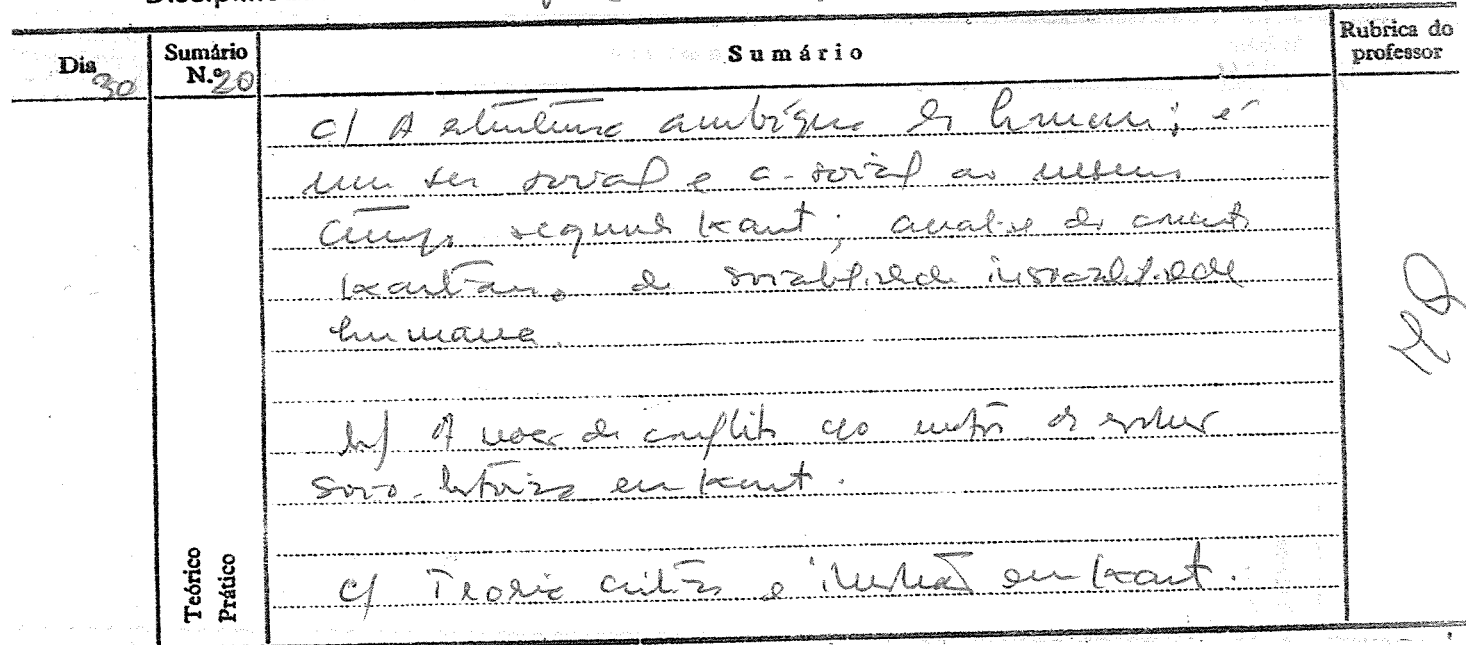 Dia 30
Sumário N.º 20
Sumário
Rubrica do professor
c/ A estrutura ambígua do humano; é
um ser social e a-social ao mesmo
tempo segundo Kant; analise do conceito
kantiano de sociabilidade insociabilidade
humana.
b/ A noção de conflito c/o motor da
socio-histórica em Kant.
Teórico
Prático
c/ Teoria crítica e ilustração em Kant.